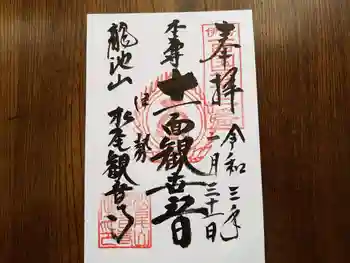 奉拝
令和三年
一月三十一日
本尊
十一面観世音
伊勢
龍池山
松尾観音寺